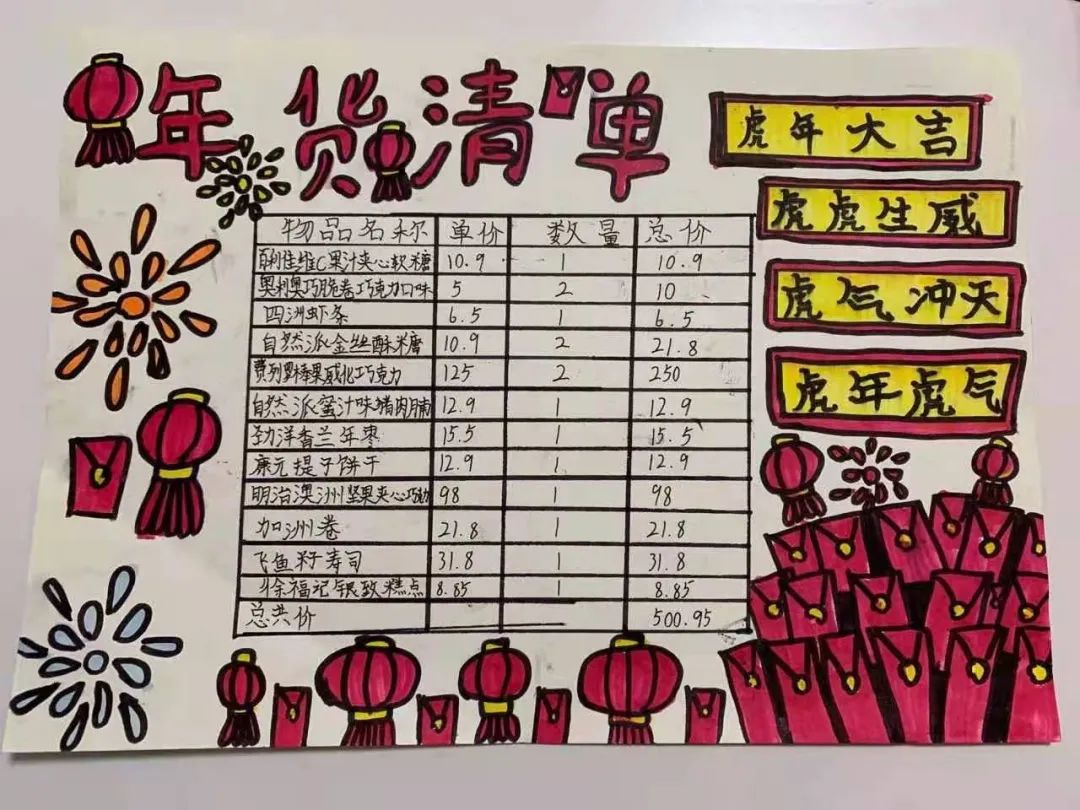 年货清单
虎年大吉
虎虎生威
虎气冲天
虎年虎气
物品名称 单价 数量 总价
百利佳维C果汁夹心软糖 10.9 1 10.9
奥利奥巧脆卷巧克力口味 5 2 10
四洲虾条 6.5 1 6.5
自然派金丝酥糖 10.9 2 21.8
费列罗榛果威化巧克力 125 2 250
自然派蜜汁味猪肉脯 12.9 1 12.9
劲洋香兰年枣 15.5 1 15.5
康元提子饼干 12.9 1 12.9
明治澳洲坚果夹心巧 98 1 98
加洲卷 21.8 1 21.8
飞鱼籽寿司 31.8 1 31.8
徐福记银致糕点 8.85 1 8.85
总共价 500.95